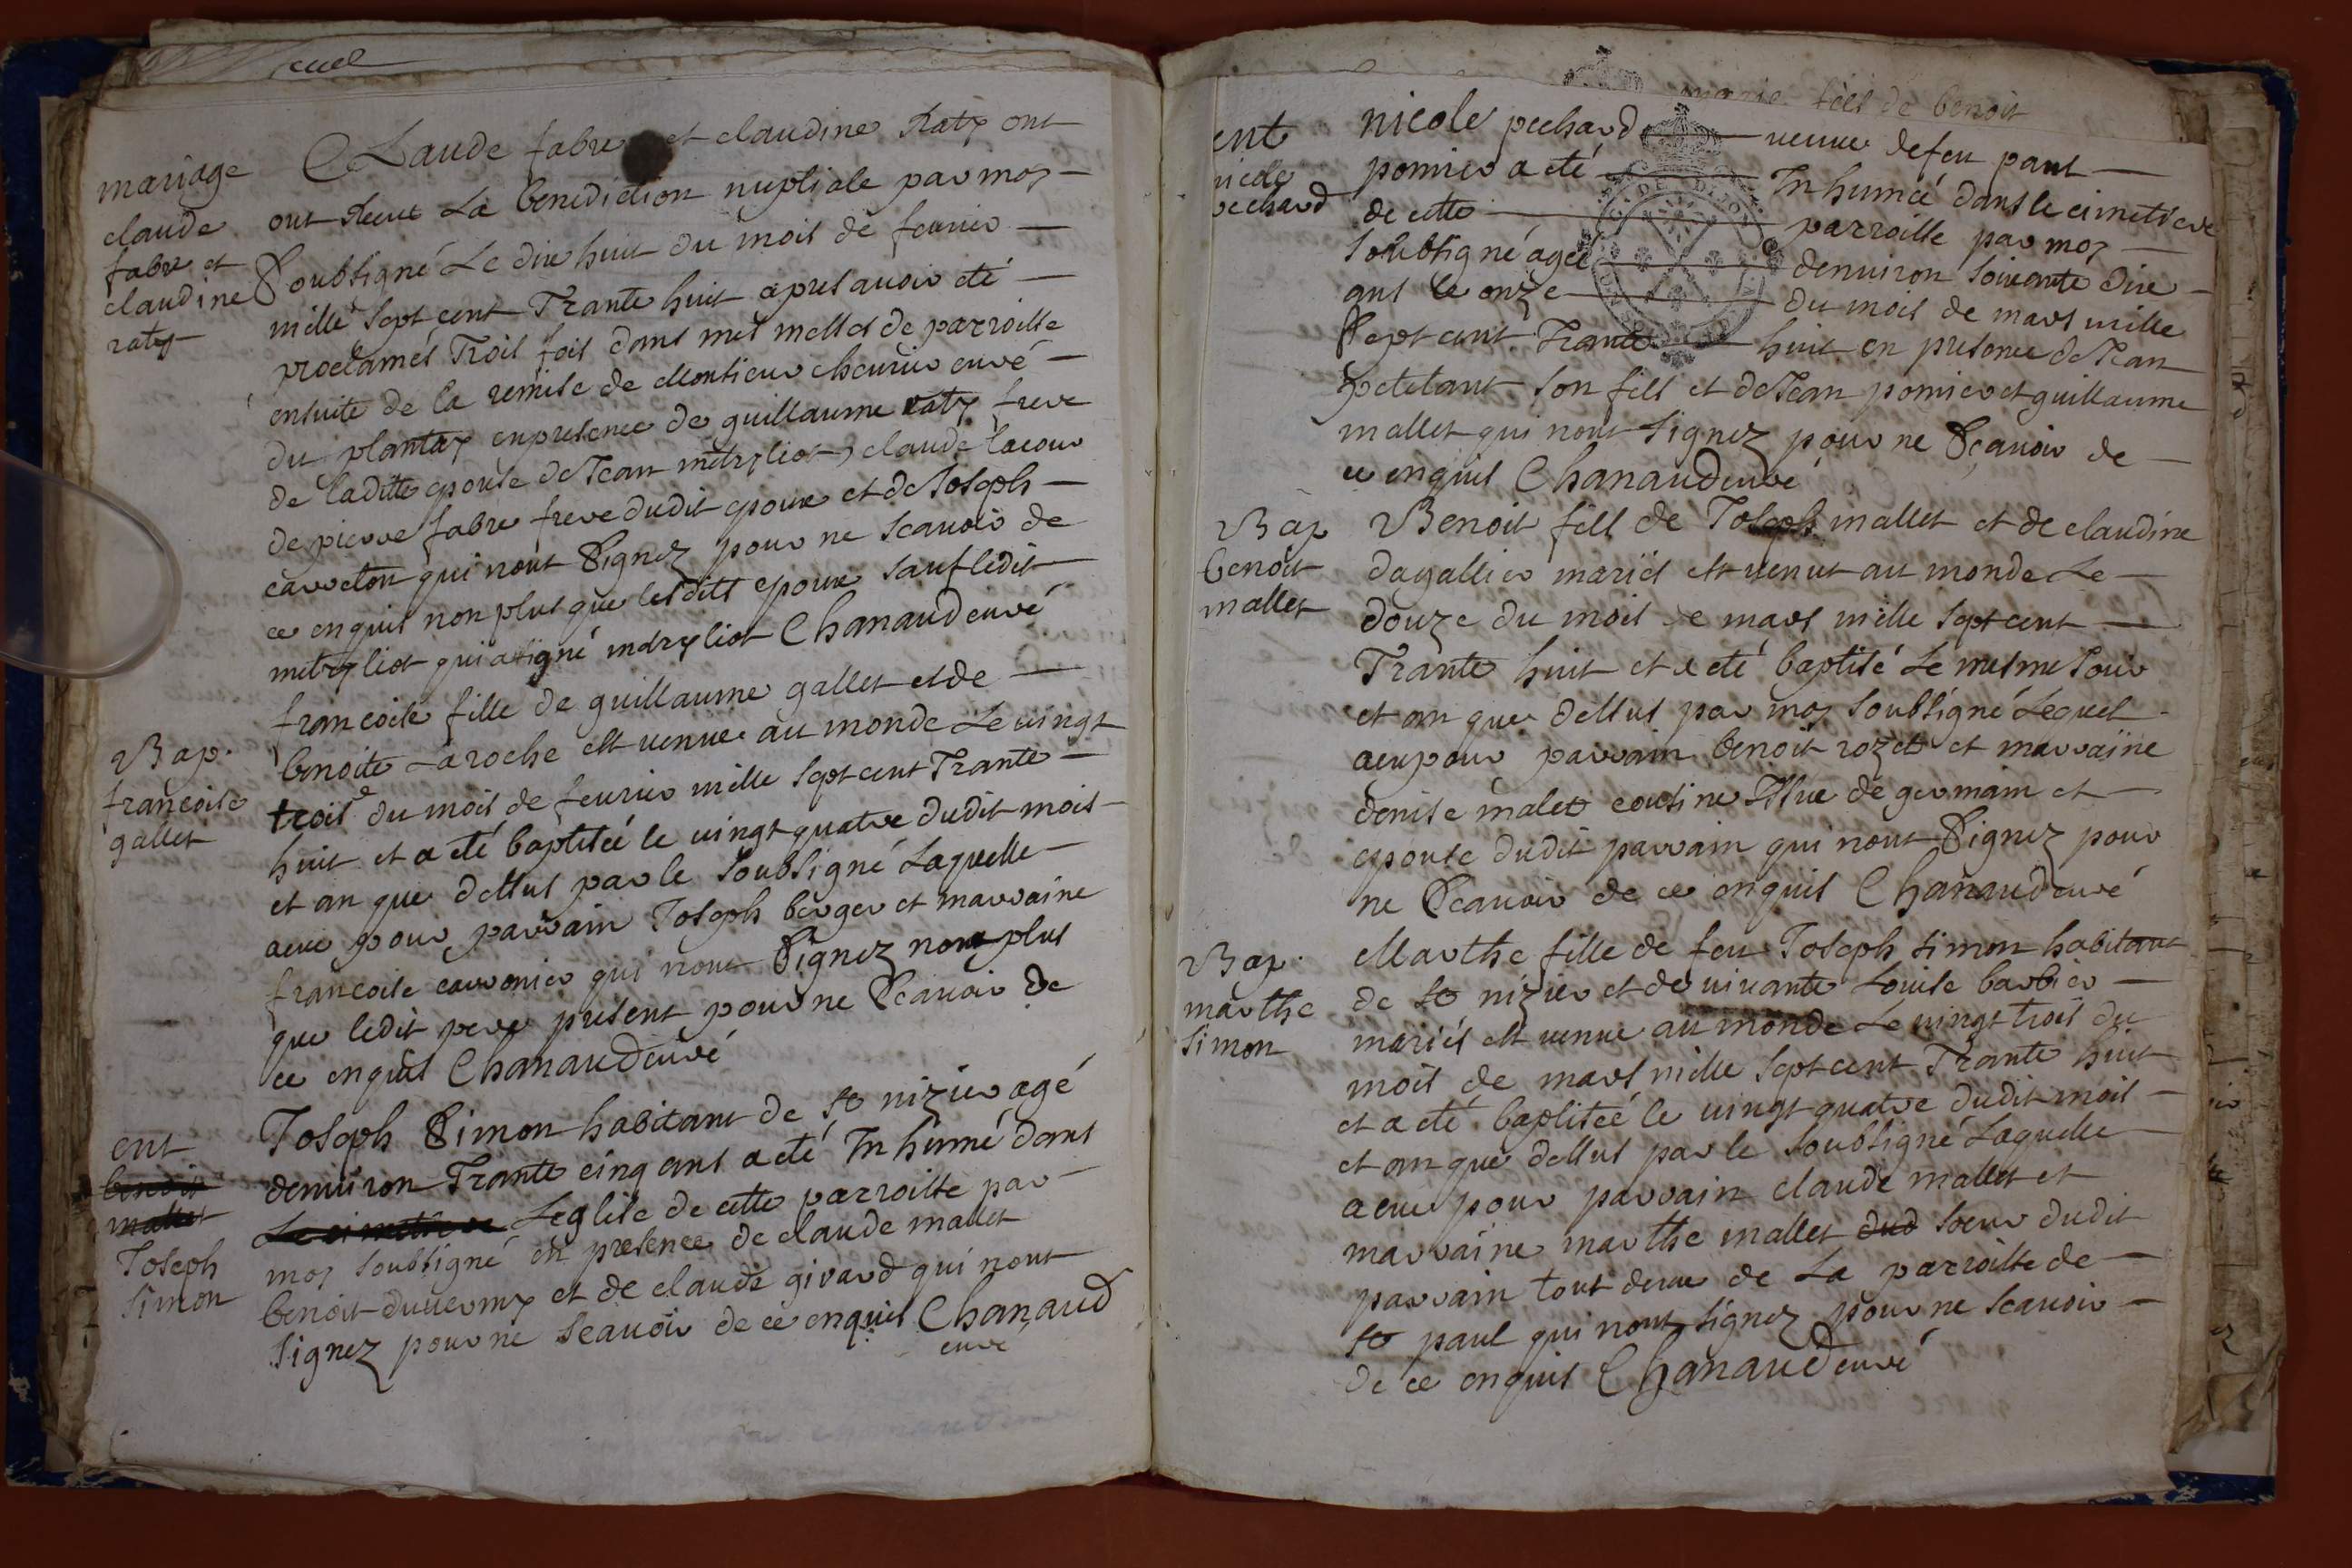 mariage
claude
fabre et
claudine
raty
Claude fabre et claudine Raty ont
ont Receut La benediction nuptiale par moy
Soubsigné Le dix huit du mois de feurier
mille Sept cent Trante huit apres auoir eté
proclamés Trois fois dans mes messes de parroisse
ensuite de la remise de Monsieur cheurier curé
du plantay enpresence de guillaume raty frere
de laditte epouse de Jean metryliot, claude lacour
de pierre fabre frere dudit epoux et de Joseph
carreton qui nont Signez pour ne scauoir de
ce enquis non plus que lesdits epoux sauf ledit
metryliot qui a signé metryliot Chanaud curé
Bap.
francoise
gallet
francoise fille de guillaume gallet et de
benoite Laroche est venue au monde Le uingt
trois du mois de feurier mille sept cent Trante
huit et a eté baptisée le uingt quatre dudit mois
et an que dessus par le Soubsigné Laquelle
aeue pour parrain Joseph berger et marraine
francoise carronier qui nont Signez non plus
que ledit pere present pour ne Scauoir de
ce enquis Chanaud curé
ent
benoit
mallet
Joseph
Simon
Joseph Simon habitant de st nizier agé
denuiron Trante cinq ans a eté Inhumé dans
Le cimetiere Leglise de cette parroisse par
moy soubsigné en presence de claude mallet
benoit duuerny et de claude girard qui nont
signez pour ne scauoir de ce enquis Chanaud
curé
marie fils de benoit
ent
nicole
pechard
nicole pechard ueuue de feu paul
pomier a eté Inhumée dans le cimetiere
de cette parroisse par moy
Soubsigné agée denuiron soixante dix
ans le onze du mois de mars mille
Sept cent Trante huit en presence de Jean
petetant son fils et de Jean pomier et guillaume
mallet qui nont signez pour ne Sçauoir de
ce enquis Chanaud curé
Bap
benoit
mallet
Benoit fils de Joseph mallet et de claudine
dagallier mariés est uenut au monde Le
douze du mois de mars mille sept cent
Trante huit et a eté baptisé Le mesme Jour
et an que dessus par moy soubsigné Lequel
aeu pour parrain benoit rozet et marraine
denise malet cousine Issue de germain et
espouse dudit parrain qui nont Signez pour
ne Scauoir de ce enquis Chanaud curé
Bap.
marthe
simon
Marthe fille de feu Joseph simon habitant
de st nizier et de uiuante Louise barbier
mariés est uenue au monde Le uingt trois du
mois de mars mille sept cent Trante huit
et a eté baptisée le uingt quatre dudit mois
et an que dessus par le soubsigné Laquelle
a eue pour parrain claude mallet et
marraine marthe mallet dud soeur dudit
parrain tout deux de La parroisse de
st paul qui nont signez pour ne scauoir
de ce enquis Chanaud curé